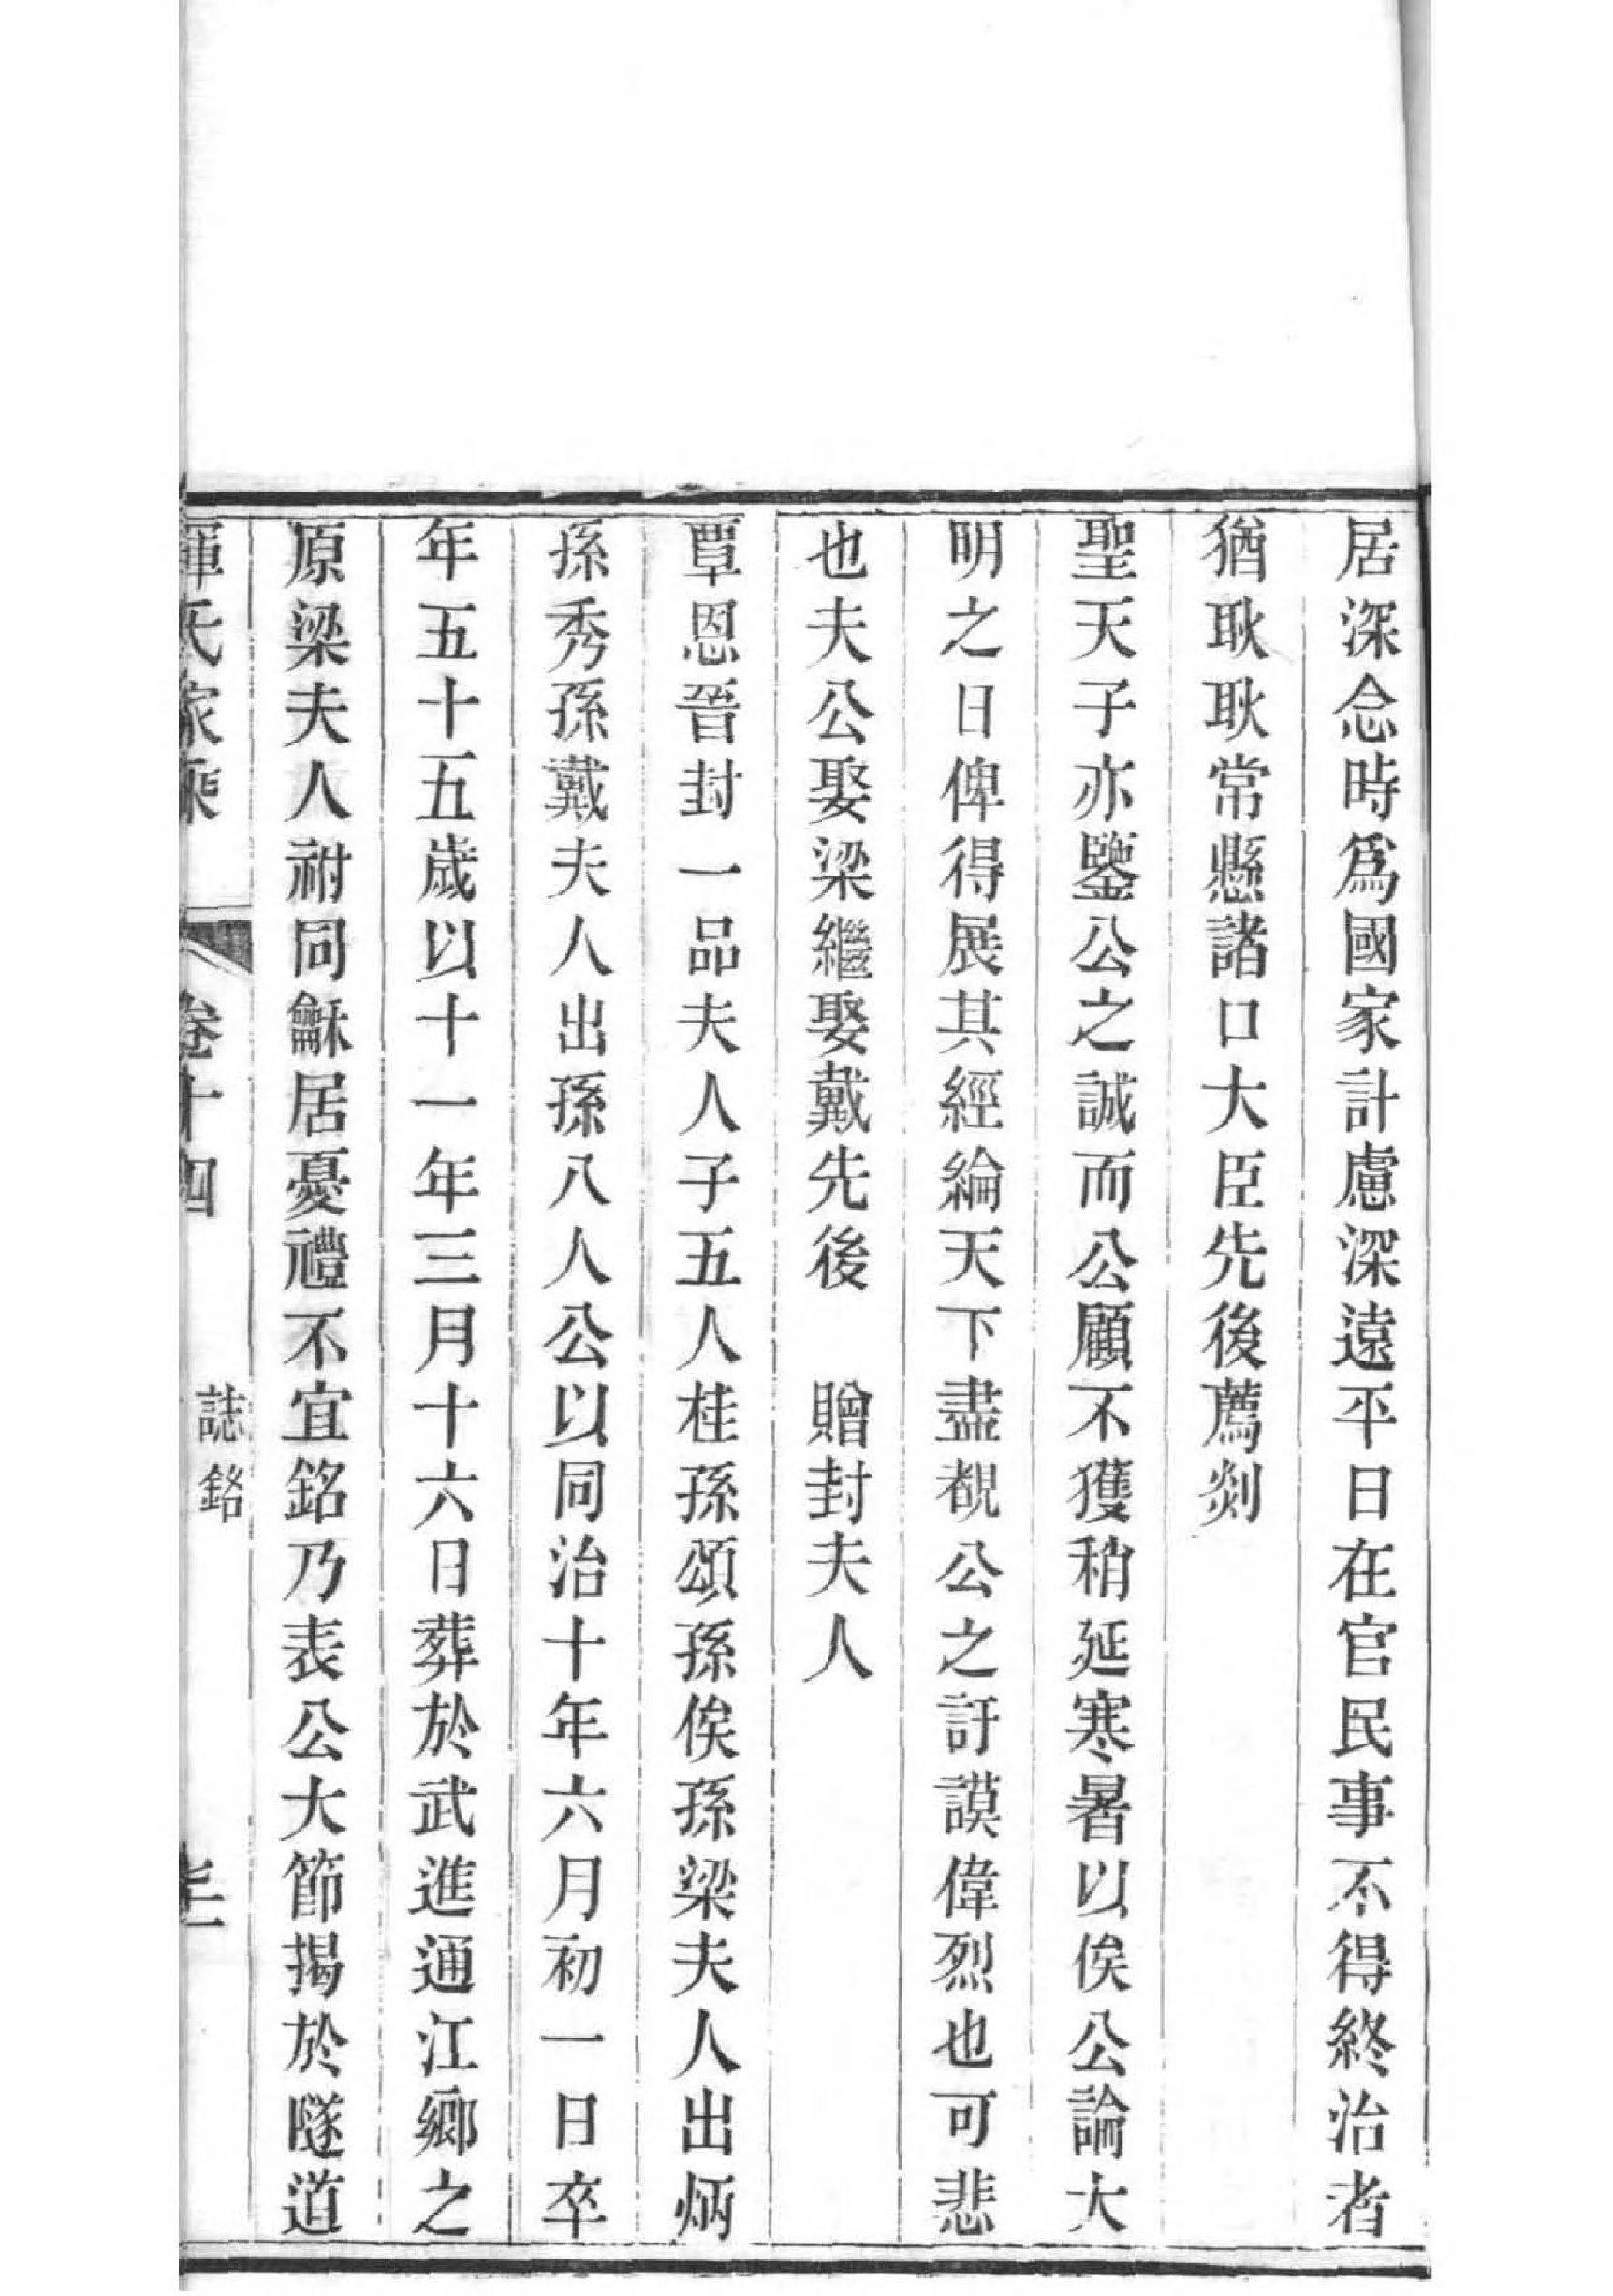 居深念時爲國家計慮深遠平日在官民事不得終治者
猶耿耿常懸諸口大臣先後薦剡
聖天子亦鑒公之誠而公顧不獲稍延寒暑以俟公論大
明之日俾得展其經綸天下盡覩公之訏謨偉烈也可悲
也夫公娶梁繼娶戴先後　贈封夫人
覃恩晉封一品夫人子五人桂孫頌孫俟孫梁夫人出炳
孫秀孫戴夫人出孫八人公以同治十年六月初一日卒
年五十五歲以十一年三月十六日葬於武進通江鄉之
原梁夫人祔同龢居憂禮不宜銘乃表公大節揭於隧道
惲氏家乘　卷十四　誌銘